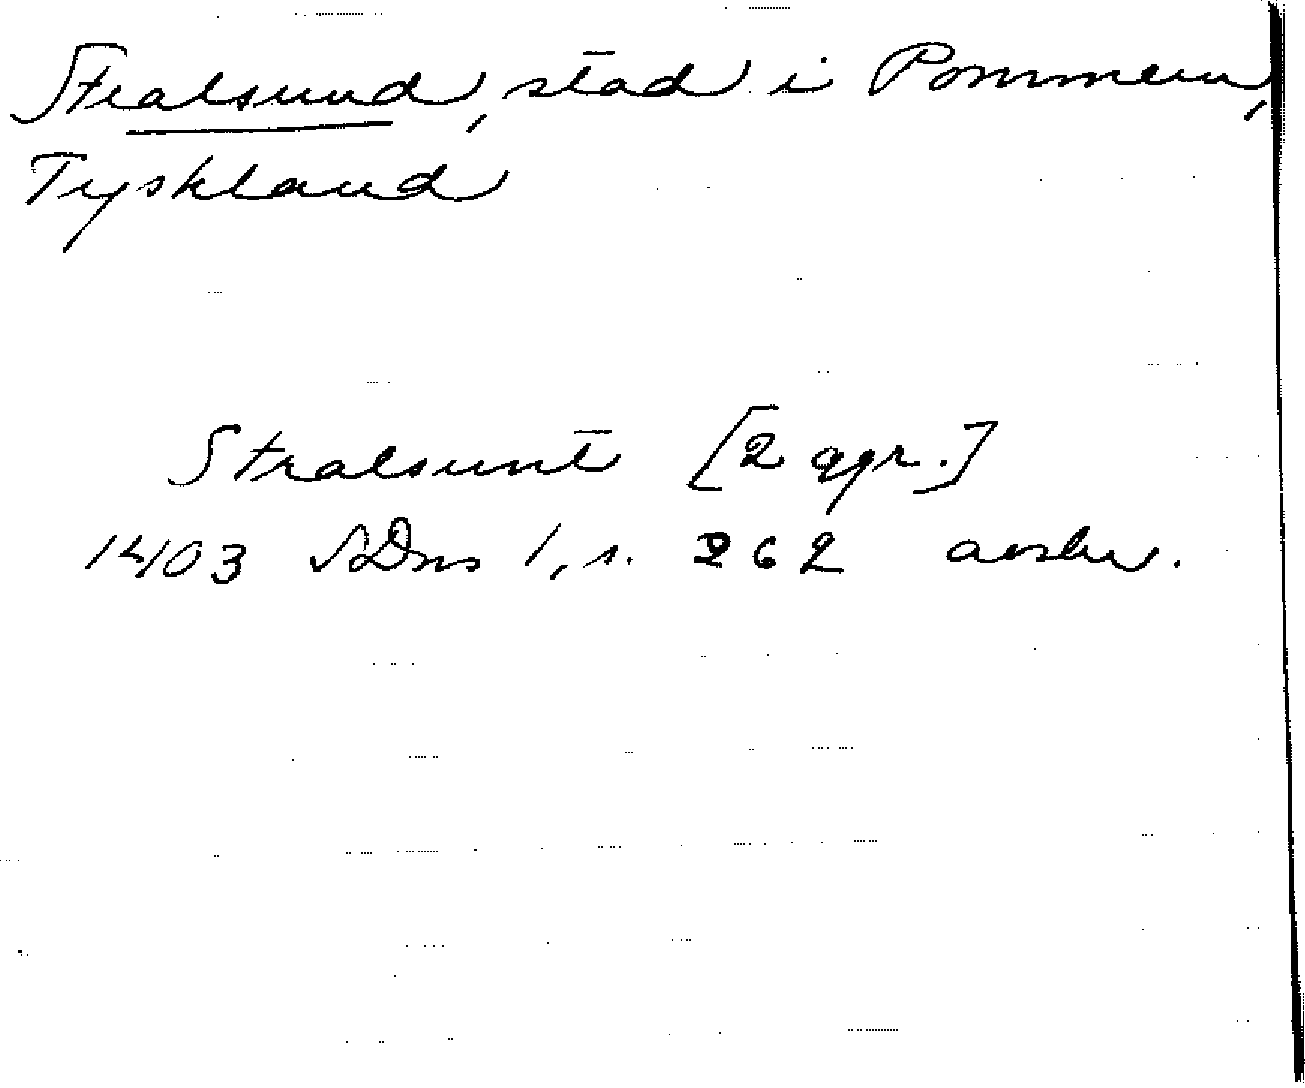 Stralsund, stad i Pommern,
Tyskland
Stralsunt [2 ggr.]
1403 SDns 1, s. 262 avskr.